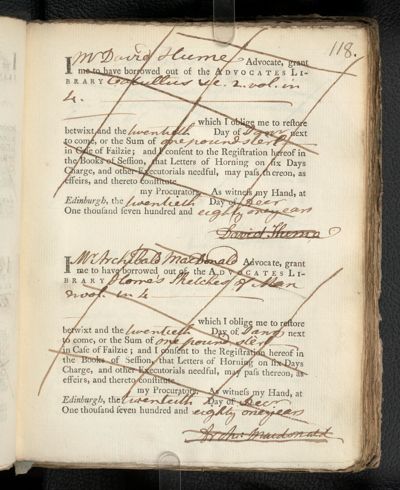 118.
I Mr David Hume Advocate, grant
me to have borrowed out of the ADVOCATES LI-
BRARY Catullus &c. 2. vol. in
4.
which I oblige me to restore
betwixt and the twentieth Day of Janry next
to come, or the Sum of one pound sterl
in Case of Failzie; and I consent to the Registration hereof in
the Books of Session, that Letters of Horning on six Days
Charge, and other Executorials needful, may pass thereon, as
effeirs, and thereto constitute
my Procurators. As witness my Hand, at
Edinburgh, the twentieth Day of Decr
One thousand seven hundred and eighty one years
David Hume
I Mr Archibald Macdonald Advocate, grant
me to have borrowed out of the ADVOCATES LI-
BRARY Home's Sketches of Man
2 vol. in 4
which I oblige me to restore
betwixt and the twentieth Day of Janry next
to come, or the Sum of one pound sterl
in Case of Failzie; and I consent to the Registration hereof in
the Books of Session, that Letters of Horning on six Days
Charge, and other Executorials needful, may pass thereon, as
effeirs, and thereto constitute
my Procurators. As witness my Hand, at
Edinburgh, the twentieth Day of Decr
One thousand seven hundred and eighty one years
Archd. Macdonald